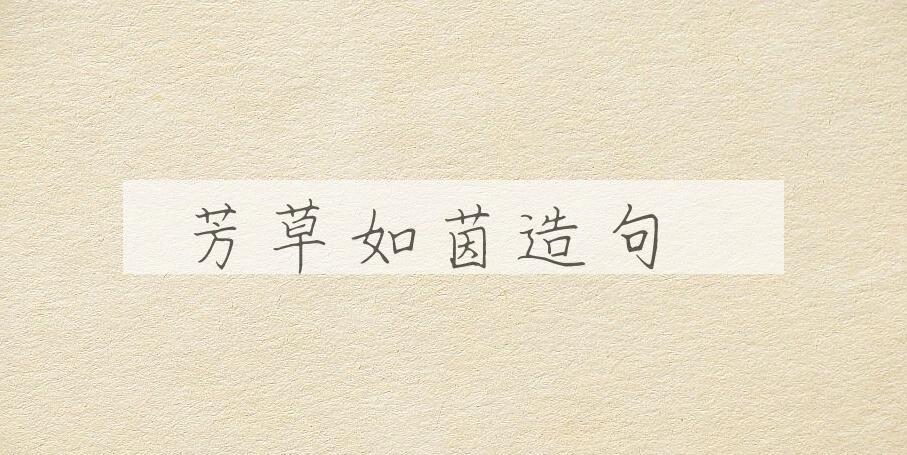 芳草如茵造句